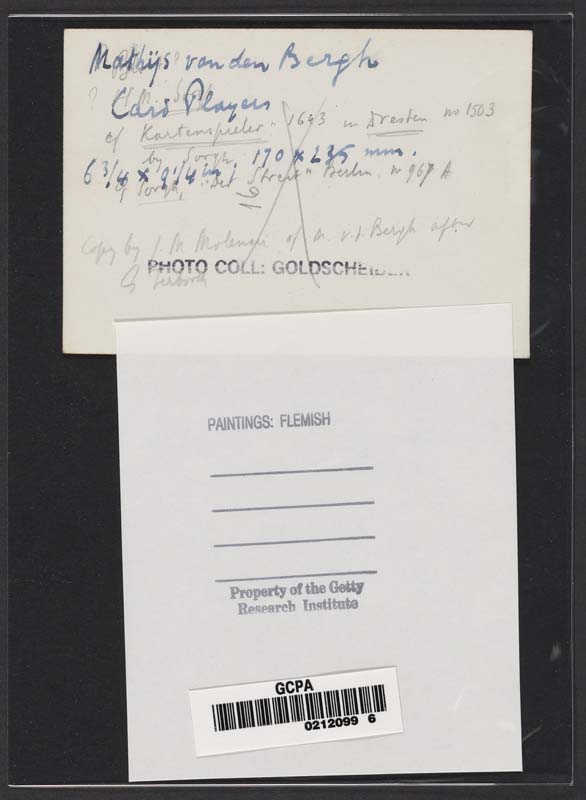 Mathijs van den Bergh
? M. Sorgh
Card Players
cf Kartenspieler" 1643 in Dresden no 1503
by Sorgh, 170 x 235 mm.
6 3/4 x 9 1/4 in!
cf Sorgh, "Der Streit" Berlin. no 967 A
Copy by J. M. Molenaer of M. v. d. Bergh after
G Terborch
PHOTO COLL: GOLDSCHEIDER
PAINTINGS: FLEMISH
Property of the Getty
Research Institute
GCPA
0212099 6